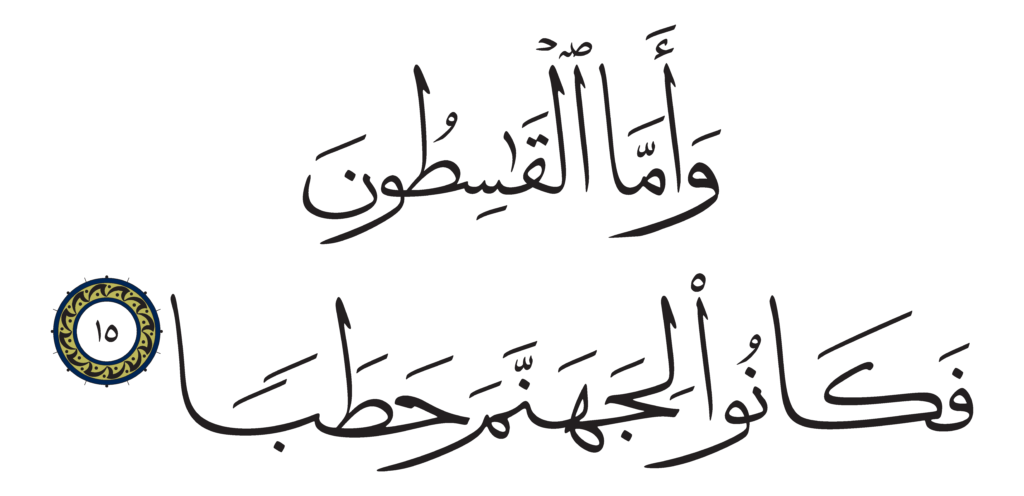 وَأَمَّا ٱلْقَـٰسِطُونَ
فَكَانُوا۟ لِجَهَنَّمَ حَطَبًا ١٥